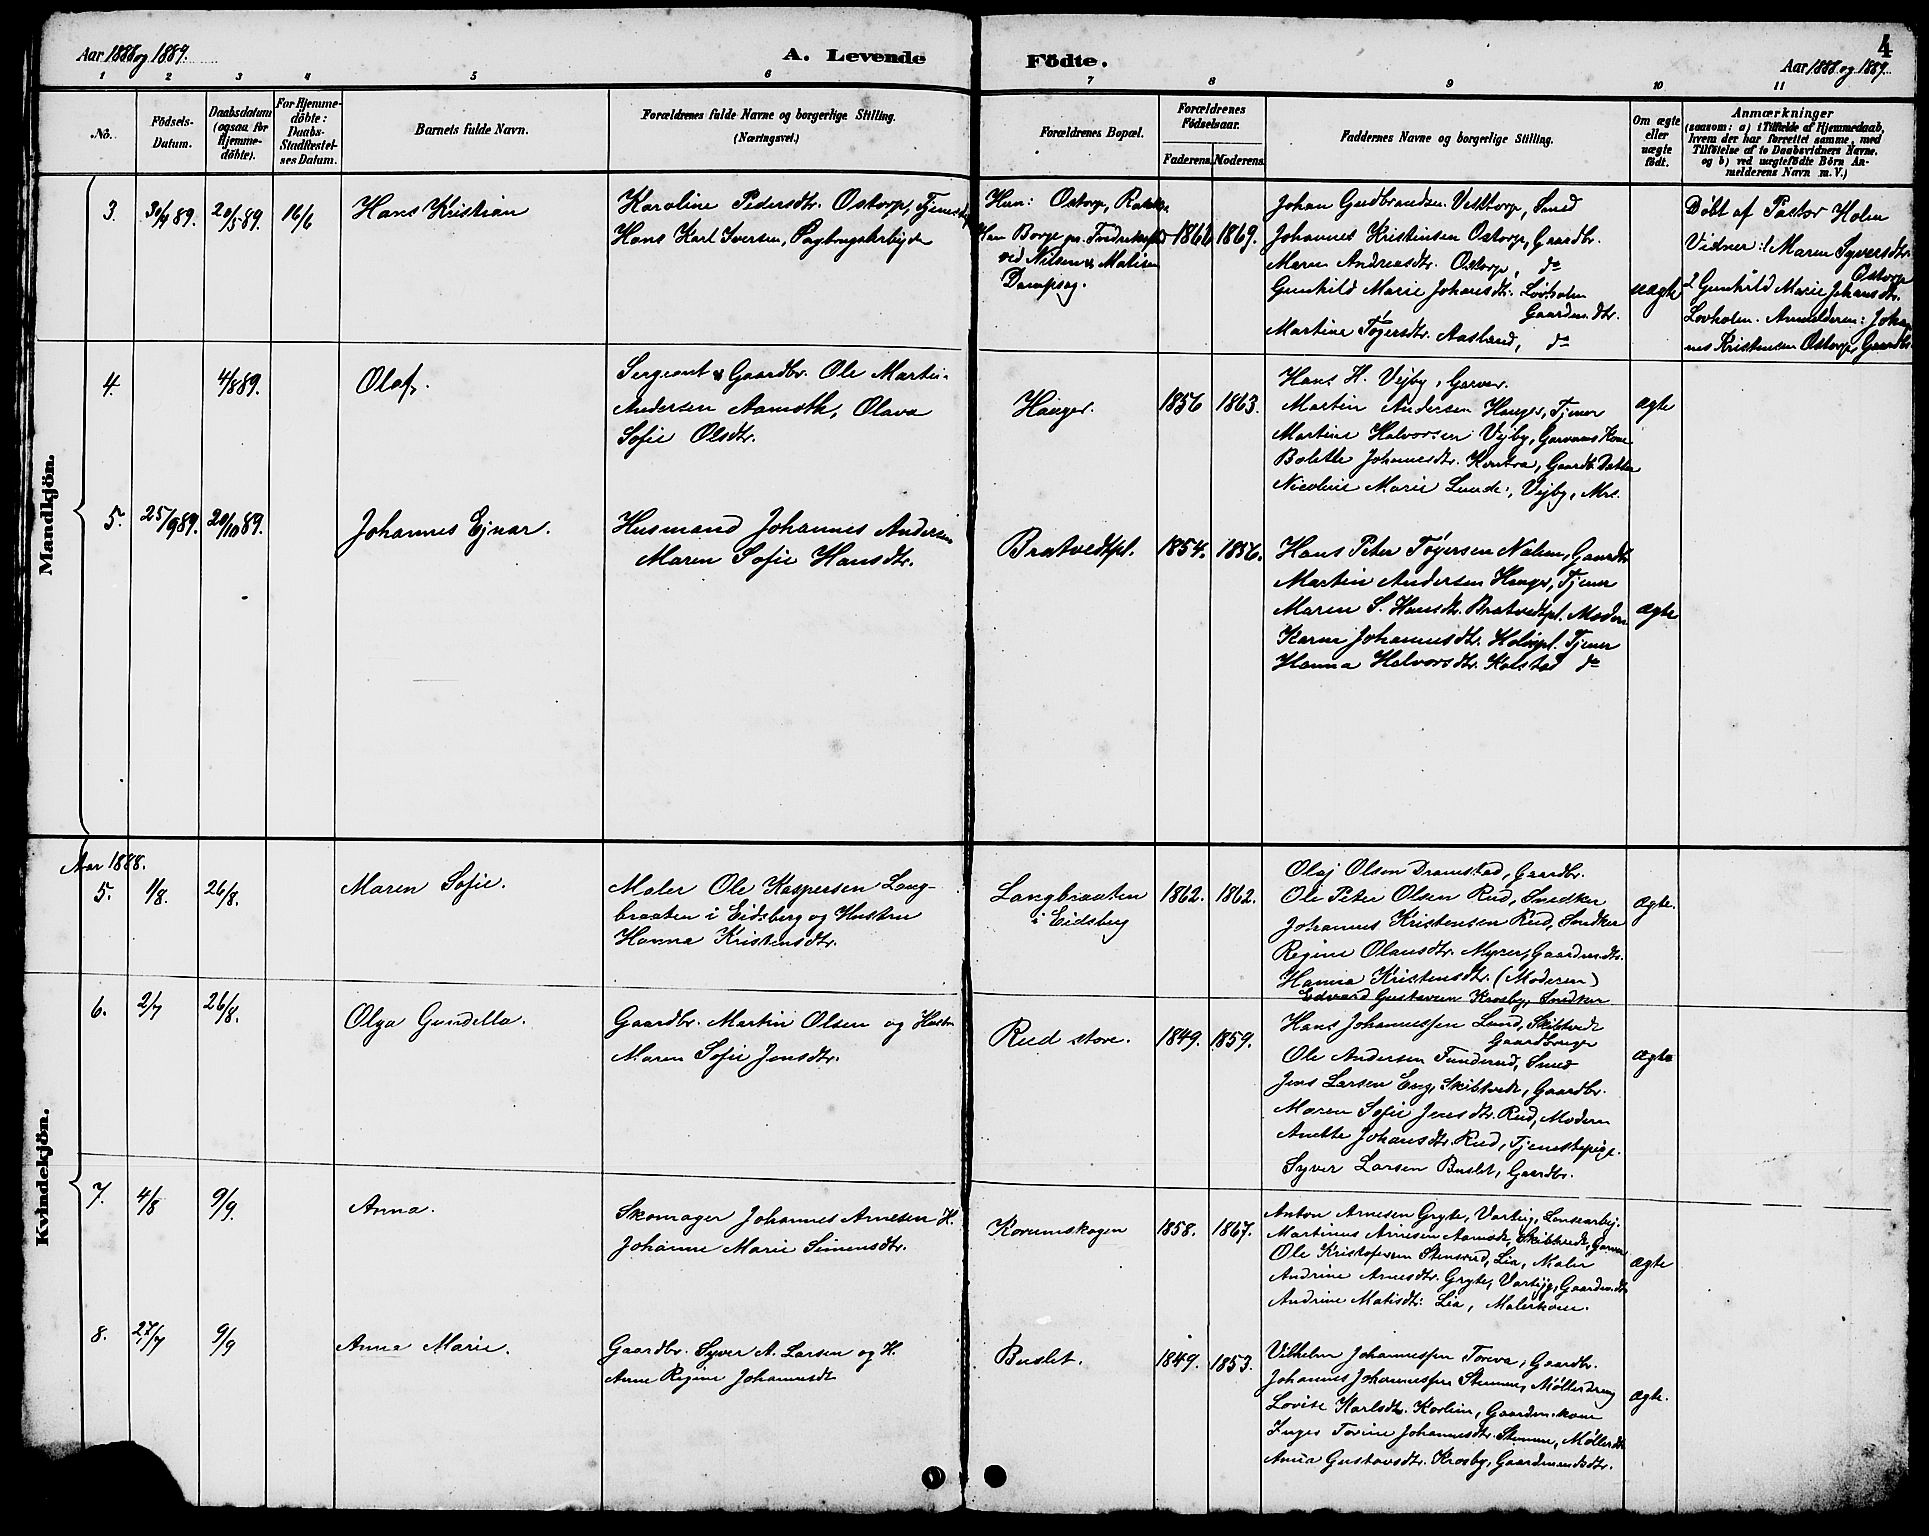 Aar 1888 og 1889.
A. Levende Födte.
4
Aar 1888 og 1889.
1 2 3 4 5 6 7 8 9 10 11
No.
Födsels-
Datum.
Daabsdatum
(ogsaa for
Hjemme-
döbte).
For Hjemme-
döbte:
Daabs-
Stadfæstel-
ses Datum.
Barnets fulde Navn.
Forældrenes fulde Navne og borgerlige Stilling.
(Næringsvei.)
Forældrenes Bopæl.
Forældrenes
Födselsaar.
Faderens. Moderens.
Faddernes Navne og borgerlige Stilling.
Om ægte
eller
uægte
födt.
Anmærkninger
(saasom: a) i Tilfælde af Hjemmedaab,
hvem der har forrettet samme, med
Tilföielse af to Daabsvidners Navne.
og b) ved uægtefödte Börn An-
melderens Navn m. V.)
Mandkjön.
3. 20/5 89. 16/6 Hans Kristian
Karoline Pedersdtr. Ostorp,
Hans Karl Iversen, Sagbrugsarbejder
Hun: Ostorp,
Han Borge pr. Fredrikstad
ved Nilsen & Matisen
Dampsag.
1869.
Johan Gudbrandsen Smed
Johannes Kristensen Ostorp, Gaardbr.
Maren Andreasdtr. Ostorp, do
Gunhild Marie Johansdtr. Lövholm
Gaardm.dtr.
Martine Tögersdtr. Aasland, do
uægte
Döbt af Pastor Holm
Vidner: 1 Maren Syversdtr.
Ostorp
2 Gunhild Marie Johansdtr.
Lövholm. Anmelderen: Johan-
nes Kristensen Ostorp, Gaardbr.
4. 4/8 89. Olaf.
Sergeant & Gaardbr. Ole Martin
Andersen Aamoth, Olava
Sofie Olsdtr.
Hauger. 1856 1863.
Hans H. Vejby, Garver.
Martin Andersen Hauger, Tjener
Martine Halvorsen Vejby, Garvers Kone
Bolette Johannesdtr. Gaardb. Datter
Nicoline Marie Lunde, Vejby, Mrs.
ægte
5. 25/9 89. 20/10 89. Johannes Ejnar.
Husmand Johannes Andersen
Maren Sofie Hansdtr.
Bratvedtpl. 1854. 1856.
Hans Peter Töyersen Gaardbr
Martin Andersen Hauger, Tjener
Maren S. Hansdtr. Bratvedtpl. Moderen
Karen Johannesdtr. Tjener
Hanna Halvorsdtr. Kolstad do
ægte
Kvindekjön.
Aar 1888.
5. 1/8. 26/8. Maren Sofie.
Maler Ole Kaspersen Lang-
braaten i Eidsberg og Hustru
Hanna Kristensdtr.
Langbraaten
i Eidsberg
1862. 1862.
Olaf Olsen Dramstad, Gaardbr.
Ole Peter Olsen Rud, Snedker
Johannes Kristensen Rud, Snedker
Regine Olausdtr. Myrer, Gaardm.dtr.
Hanna Kristensdtr. (Moderen)
ægte.
6. 2/7 26/8. Olga Gundella.
Gaardbr. Martin Olsen og Hustru
Maren Sofie Jensdtr.
Rud store. 1849. 1859.
Edvard Gustavsen Krosby, Snedker
Hans Johannessen Lund, Skibtvedt
Gaardbruger
Ole Andersen Funderud, Smed
Jens Larsen Eng, Skibtvedt, Gaardbr.
Maren Sofie Jensdtr. Rud, Moderen
Anette Johansdtr. Rud, Tjenestepige.
Syver Larsen Buslet, Gaardbr.
ægte
7. 4/8 9/9. Anna.
Skomager Johannes Arnesen H.
Johanne Marie Simensdtr.
Korumskogen 1858. 1867.
Anton Arnesen Gryte, Varteig,
Martinus Arnesen Skibtvedt, Garver
Ole Kristofersen Stensrud, Lia, Maler
Andrine Arnesdtr. Gryte, Varteig, Gaardm.dtr.
Andrine Matisdtr. Lia, Malerkone.
ægte
8. 27/7 9/9 Anna Marie.
Gaardbr. Syver A. Larsen og H.
Anne Regine Johannesdtr
Buslet. 1849. 1853.
Vilhelm Johannessen Toreva, Gaardbr.
Johannes Johannessen Stemme, Möllerdreng
Lovise Karlsdtr. Korlim, Gaardm.kone
Inger Torine Johannesdtr. Stemme, Möllerdtr
Anna Gustavsdtr. Krosby, Gaardmandsdtr.
ægte.